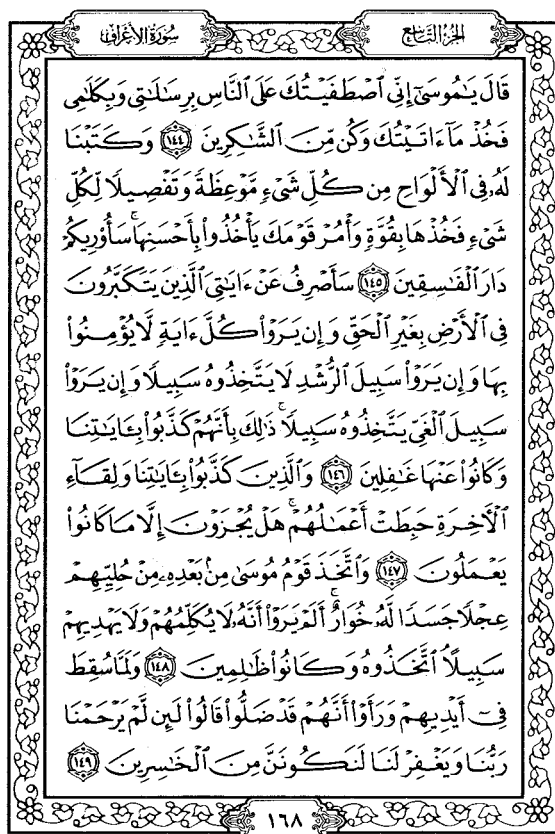 سُورَةُ الأَعْرَافِ
الجُزْءُ التَّاسِعُ
قَالَ يَٰمُوسَىٰٓ إِنِّى ٱصْطَفَيْتُكَ عَلَى ٱلنَّاسِ بِرِسَٰلَٰتِى وَبِكَلَٰمِى
فَخُذْ مَآ ءَاتَيْتُكَ وَكُن مِّنَ ٱلشَّٰكِرِينَ ١٤٤ وَكَتَبْنَا
لَهُۥ فِى ٱلْأَلْوَاحِ مِن كُلِّ شَىْءٍ مَّوْعِظَةً وَتَفْصِيلًا لِّكُلِّ
شَىْءٍ فَخُذْهَا بِقُوَّةٍ وَأْمُرْ قَوْمَكَ يَأْخُذُوا۟ بِأَحْسَنِهَا ۚ سَأُو۟رِيكُمْ
دَارَ ٱلْفَٰسِقِينَ ١٤٥ سَأَصْرِفُ عَنْ ءَايَٰتِىَ ٱلَّذِينَ يَتَكَبَّرُونَ
فِى ٱلْأَرْضِ بِغَيْرِ ٱلْحَقِّ وَإِن يَرَوْا۟ كُلَّ ءَايَةٍ لَّا يُؤْمِنُوا۟
بِهَا وَإِن يَرَوْا۟ سَبِيلَ ٱلرُّشْدِ لَا يَتَّخِذُوهُ سَبِيلًا وَإِن يَرَوْا۟
سَبِيلَ ٱلْغَىِّ يَتَّخِذُوهُ سَبِيلًا ۚ ذَٰلِكَ بِأَنَّهُمْ كَذَّبُوا۟ بِـَٔايَٰتِنَا
وَكَانُوا۟ عَنْهَا غَٰفِلِينَ ١٤٦ وَٱلَّذِينَ كَذَّبُوا۟ بِـَٔايَٰتِنَا وَلِقَآءِ
ٱلْءَاخِرَةِ حَبِطَتْ أَعْمَٰلُهُمْ ۚ هَلْ يُجْزَوْنَ إِلَّا مَا كَانُوا۟
يَعْمَلُونَ ١٤٧ وَٱتَّخَذَ قَوْمُ مُوسَىٰ مِنۢ بَعْدِهِۦ مِنْ حُلِيِّهِمْ
عِجْلًا جَسَدًا لَّهُۥ خُوَارٌ ۚ أَلَمْ يَرَوْا۟ أَنَّهُۥ لَا يُكَلِّمُهُمْ وَلَا يَهْدِيهِمْ
سَبِيلًا ۘ ٱتَّخَذُوهُ وَكَانُوا۟ ظَٰلِمِينَ ١٤٨ وَلَمَّا سُقِطَ
فِىٓ أَيْدِيهِمْ وَرَأَوْا۟ أَنَّهُمْ قَدْ ضَلُّوا۟ قَالُوا۟ لَئِن لَّمْ يَرْحَمْنَا
رَبُّنَا وَيَغْفِرْ لَنَا لَنَكُونَنَّ مِنَ ٱلْخَٰسِرِينَ ١٤٩
١٦٨